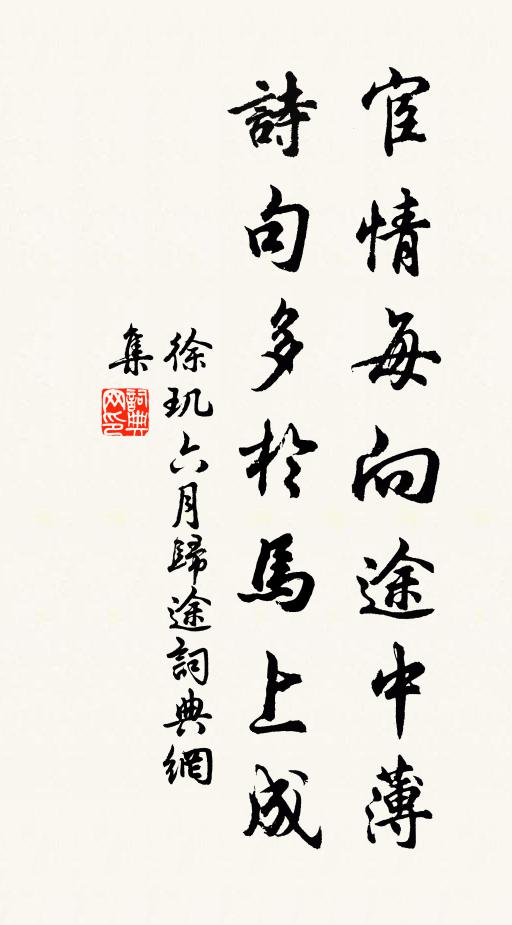 宦情每向途中薄
詩句多於馬上成
徐玑六月歸途詞典網
集
詞典
网印